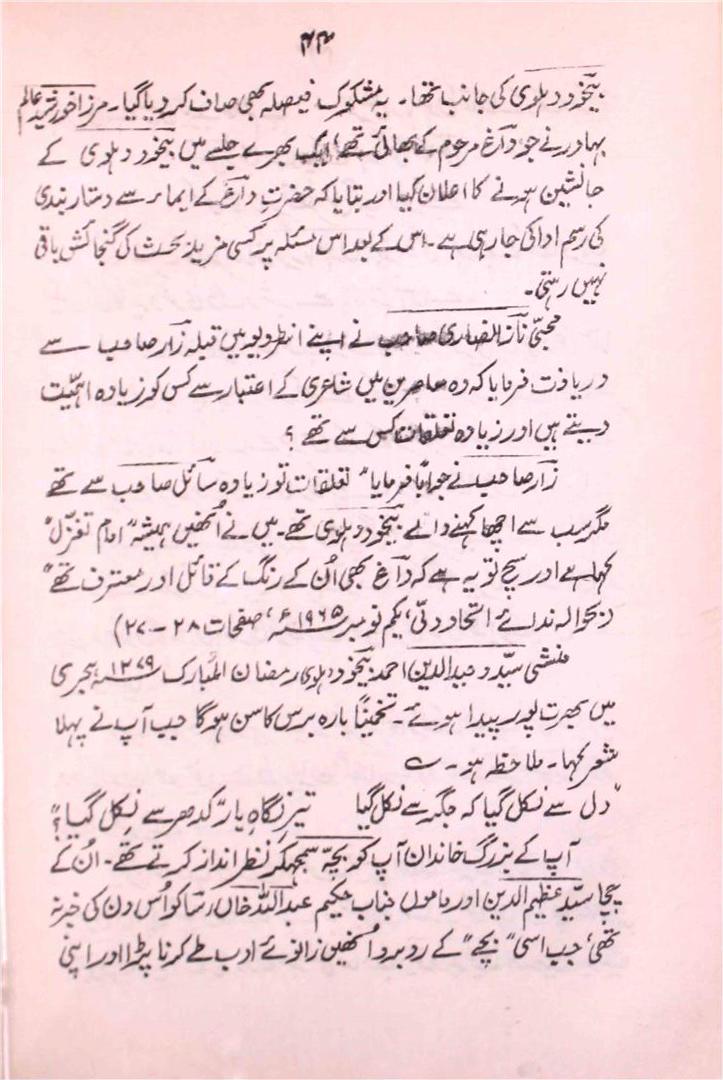 ۴۴
بیخود دہلوی کی جانب تھا۔ یہ مشکوک فیصلہ بھی صاف کر دیا گیا۔ مرزا خورشید عالم
بہادر نے جو داغ مرحوم کے بھائی تھے، ایک بھرے جلسے میں بیخود دہلوی کے
جانشین ہونے کا اعلان کیا اور بتایا کہ حضرت داغ کے ایماء سے دستار بندی
کی رسم ادا کی جا رہی ہے۔ اس کے بعد اس مسئلہ پر کسی مزید بحث کی گنجائش باقی
نہیں رہتی۔
محبی ناز انصاری صاحب نے اپنے انٹرویو میں قبلہ زار صاحب سے
دریافت فرمایا کہ وہ معاصرین میں شاعری کے اعتبار سے کس کو زیادہ اہمیت
دیتے ہیں اور زیادہ تعلقات کس سے تھے؟
زار صاحب نے جواباً فرمایا "تعلقات تو زیادہ سائل صاحب سے تھے
مگر سب سے اچھا کہنے والے بیخود دہلوی تھے۔ میں نے اُنھیں ہمیشہ "امام تغزل"
کہا ہے اور سچ تو یہ ہے کہ داغ بھی اُن کے رنگ کے قائل اور معترف تھے"
(بحوالہ ندائے اتحاد دلّی، یکم نومبر ۱۹۶۵ء، صفحات ۲۸-۲۷)
منشی سیّد وحیدالدین احمد بیخود دہلوی رمضان المبارک ۱۲۷۹ ہجری
میں بھرت پور پیدا ہوئے۔ تخمیناً بارہ برس کا سن ہوگا جب آپ نے پہلا
شعر کہا۔ ملاحظہ ہو۔ ؎
"دل سے نکل گیا کہ جگر سے نکل گیا تیرِ نگاہِ یار کدھر سے نکل گیا؟"
آپ کے بزرگ خاندان آپ کو بچہ سمجھکر نظر انداز کرتے تھے۔ اُن کے
چچا سیّد عظیم الدین اور ماموں جناب حکیم عبداللہ خاں رسا کو اُس دن کی خبر نہ
تھی، جب اسی "بچے" کے روبرو اُنھیں زانوئے ادب طے کرنا پڑا اور اپنی